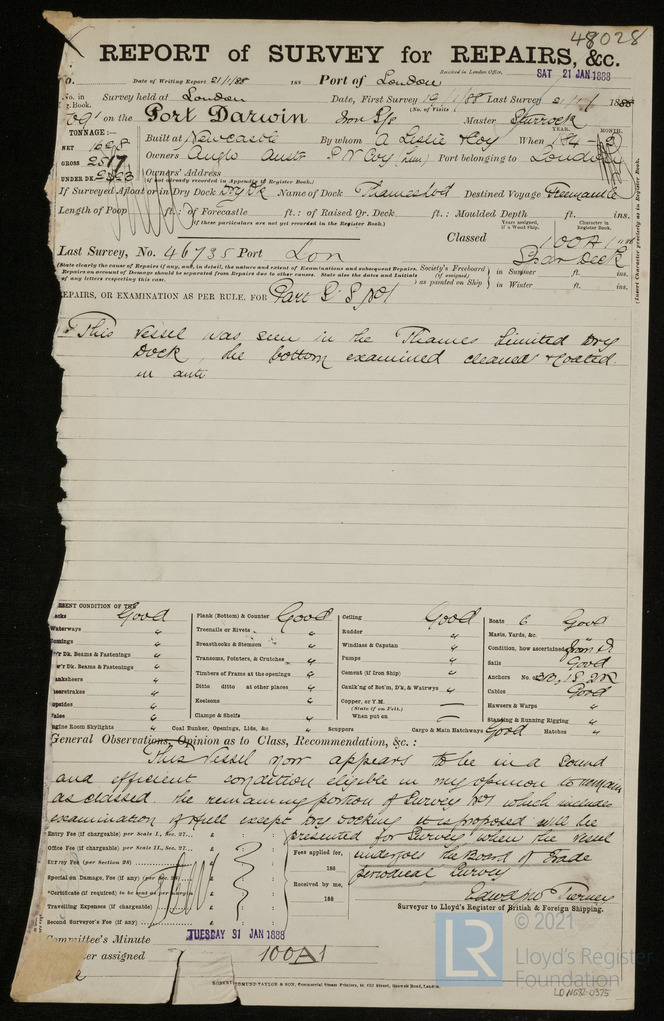 48028
REPORT of SURVEY for REPAIRS, &c.
Date of Writing Report 21/1/88 188 Port of London Received in London Office, SAT 21 JAN 1888
No. in Survey held at London Date, First Survey 19/1/88 Last Survey 188
g. Book. (No. of Visits)
on the Port Darwin Iron Master Sturrock
TONNAGE:— YEAR. MONTH.
NET 1698 Built at Newcastle By whom A Leslie & Coy When
GROSS 2517 Owners Anglo Austr S N Coy (Lim) Port belonging to London
UNDER DK. Owners' Address
(if not already recorded in Appendix of Register Book.)
If Surveyed Afloat or in Dry Dock Dry Dk Name of Dock Thames Ltd Destined Voyage Fremantle
Length of Poop ft.: of Forecastle ft.: of Raised Qr. Deck ft.: Moulded Depth ft. ins.
(if these particulars are not yet recorded in the Register Book.) Years assigned, if a Wood Ship. Character in Register Book.
Classed 100A1
Last Survey, No. 46735 Port Lon Spar Deck
(State clearly the cause of Repairs if any, and, in detail, the nature and extent of Examinations and subsequent Repairs. Society's Freeboard (if assigned) as painted on Ship in Summer ft. ins.
Repairs on account of Damage should be separated from Repairs due to other causes. State also the dates and Initials
of any letters respecting this case. in Winter ft. ins.
(Insert Character precisely as in Register Book.)
EPAIRS, OR EXAMINATION AS PER RULE. FOR Part S. S. No 1
This Vessel was seen in the Thames Limited Dry
Dock, the bottom examined cleaned & coated
in anti
ESENT CONDITION OF THE
ecks Good Plank (Bottom) & Counter Good Ceiling Good Boats 6 Good
Waterways " Treenails or Rivets " Rudder " Masts, Yards, &c.
omings " Breasthooks & Stemson " Windlass & Capstan " Condition, how ascertained
'r Dk. Beams & Fastenings " Transoms, Pointers, & Crutches " Pumps " Sails Good
w'r Dk. Beams & Fastenings " Timbers of Frame at the openings " Cement (if Iron Ship) " Anchors No. of 3B, 1S, 2K
anksheers " Ditto ditto at other places " Caulk'ng of Bot'm, D'k, & Waterways " Cables Good
eerstrakes " Keelsons " Copper, or Y.M. — Hawsers & Warps "
opsides " Clamps & Shelfs " (State if on Felt.) Standing & Running Rigging "
ales " When put on —
ngine Room Skylights " Coal Bunker, Openings, Lids, &c " Scuppers " Cargo & Main Hatchways Good Hatches "
General Observations, Opinion as to Class, Recommendation, &c. :
This Vessel now appears to be in a sound
and efficient condition eligible in my opinion to remain
as classed. the remaining portion of Survey No 1 which includes
examination of full except Dry Docking it is proposed will be
presented for Survey when the Vessel
undergoes the Board of Trade
periodical Survey
Entry Fee (if chargeable) per Scale I., Sec. 27... £ : :
Office Fee (if chargeable) per Scale II., Sec. 27... £ : :
Survey Fee (per Section 28) £ : :
Special on Damage, Fee (if any) (per Sec. 28) £ : :
*Certificate (if required) to be sent as per margin £ : :
Travelling Expenses (if chargeable) £ : :
Second Surveyor's Fee (if any) £ : :
Fees applied for,
188
Received by me,
188
Edward Tierney
Surveyor to Lloyd's Register of British & Foreign Shipping.
Committee's Minute TUESDAY 31 JAN 1888
er assigned 100A1
ROBERT EDMUND TAYLOR & SON, Commercial Steam Printers, 19, Old Street, Goswell Road, London.
© 2021
LR Lloyd's Register
Foundation
LDNG32-0375